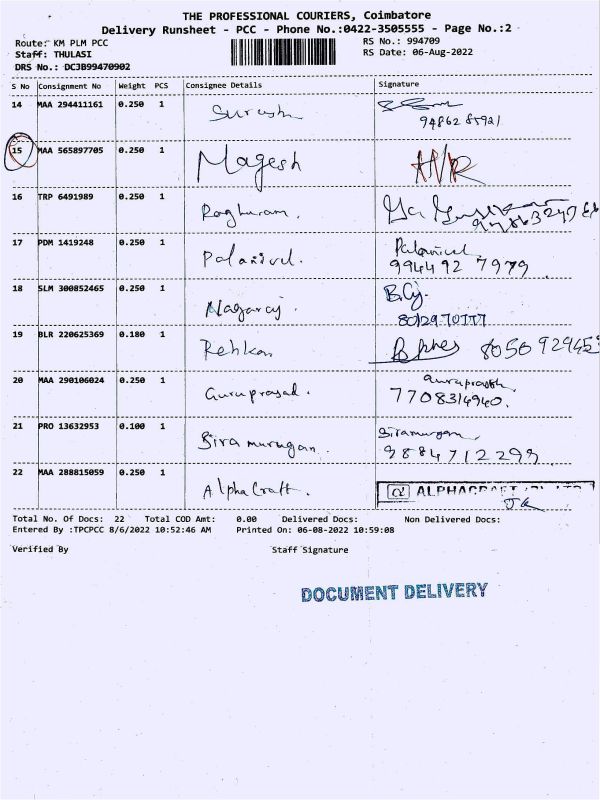 THE PROFESSIONAL COURIERS, Coimbatore
Delivery Runsheet - PCC - Phone No.:0422-3505555 - Page No.:2
Route: KM PLM PCC
RS No.: 994709
Staff: THULASI
RS Date: 06-Aug-2022
DRS No.: DC3B99470902
S No Consignment No Weight PCS Consignee Details Signature
14 MAA 294411161 0.250 1 Suresh
15 MAA 565897705 0.250 1 Magesh
16 TRP 6491989 0.250 1 Raghuram.
17 PDM 1419248 0.250 1 Palanivel. Palanivel
994492 7979
18 SLM 300852465 0.250 1 Nagaraj.
19 BLR 220625369 0.180 1
20 MAA 290106024 0.250 1 Guruprasad.
7708314940.
21 PRO 13632953 0.100 1 Siramurugan. Siramurugan
9884712299
22 MAA 288815059 0.250 1 AlphaCraft. ALPHACRAFT
Total No. Of Docs: 22 Total COD Amt: 0.00 Delivered Docs: Non Delivered Docs:
Entered By :TPCPCC 8/6/2022 10:52:46 AM Printed On: 06-08-2022 10:59:08
Verified By Staff Signature
DOCUMENT DELIVERY